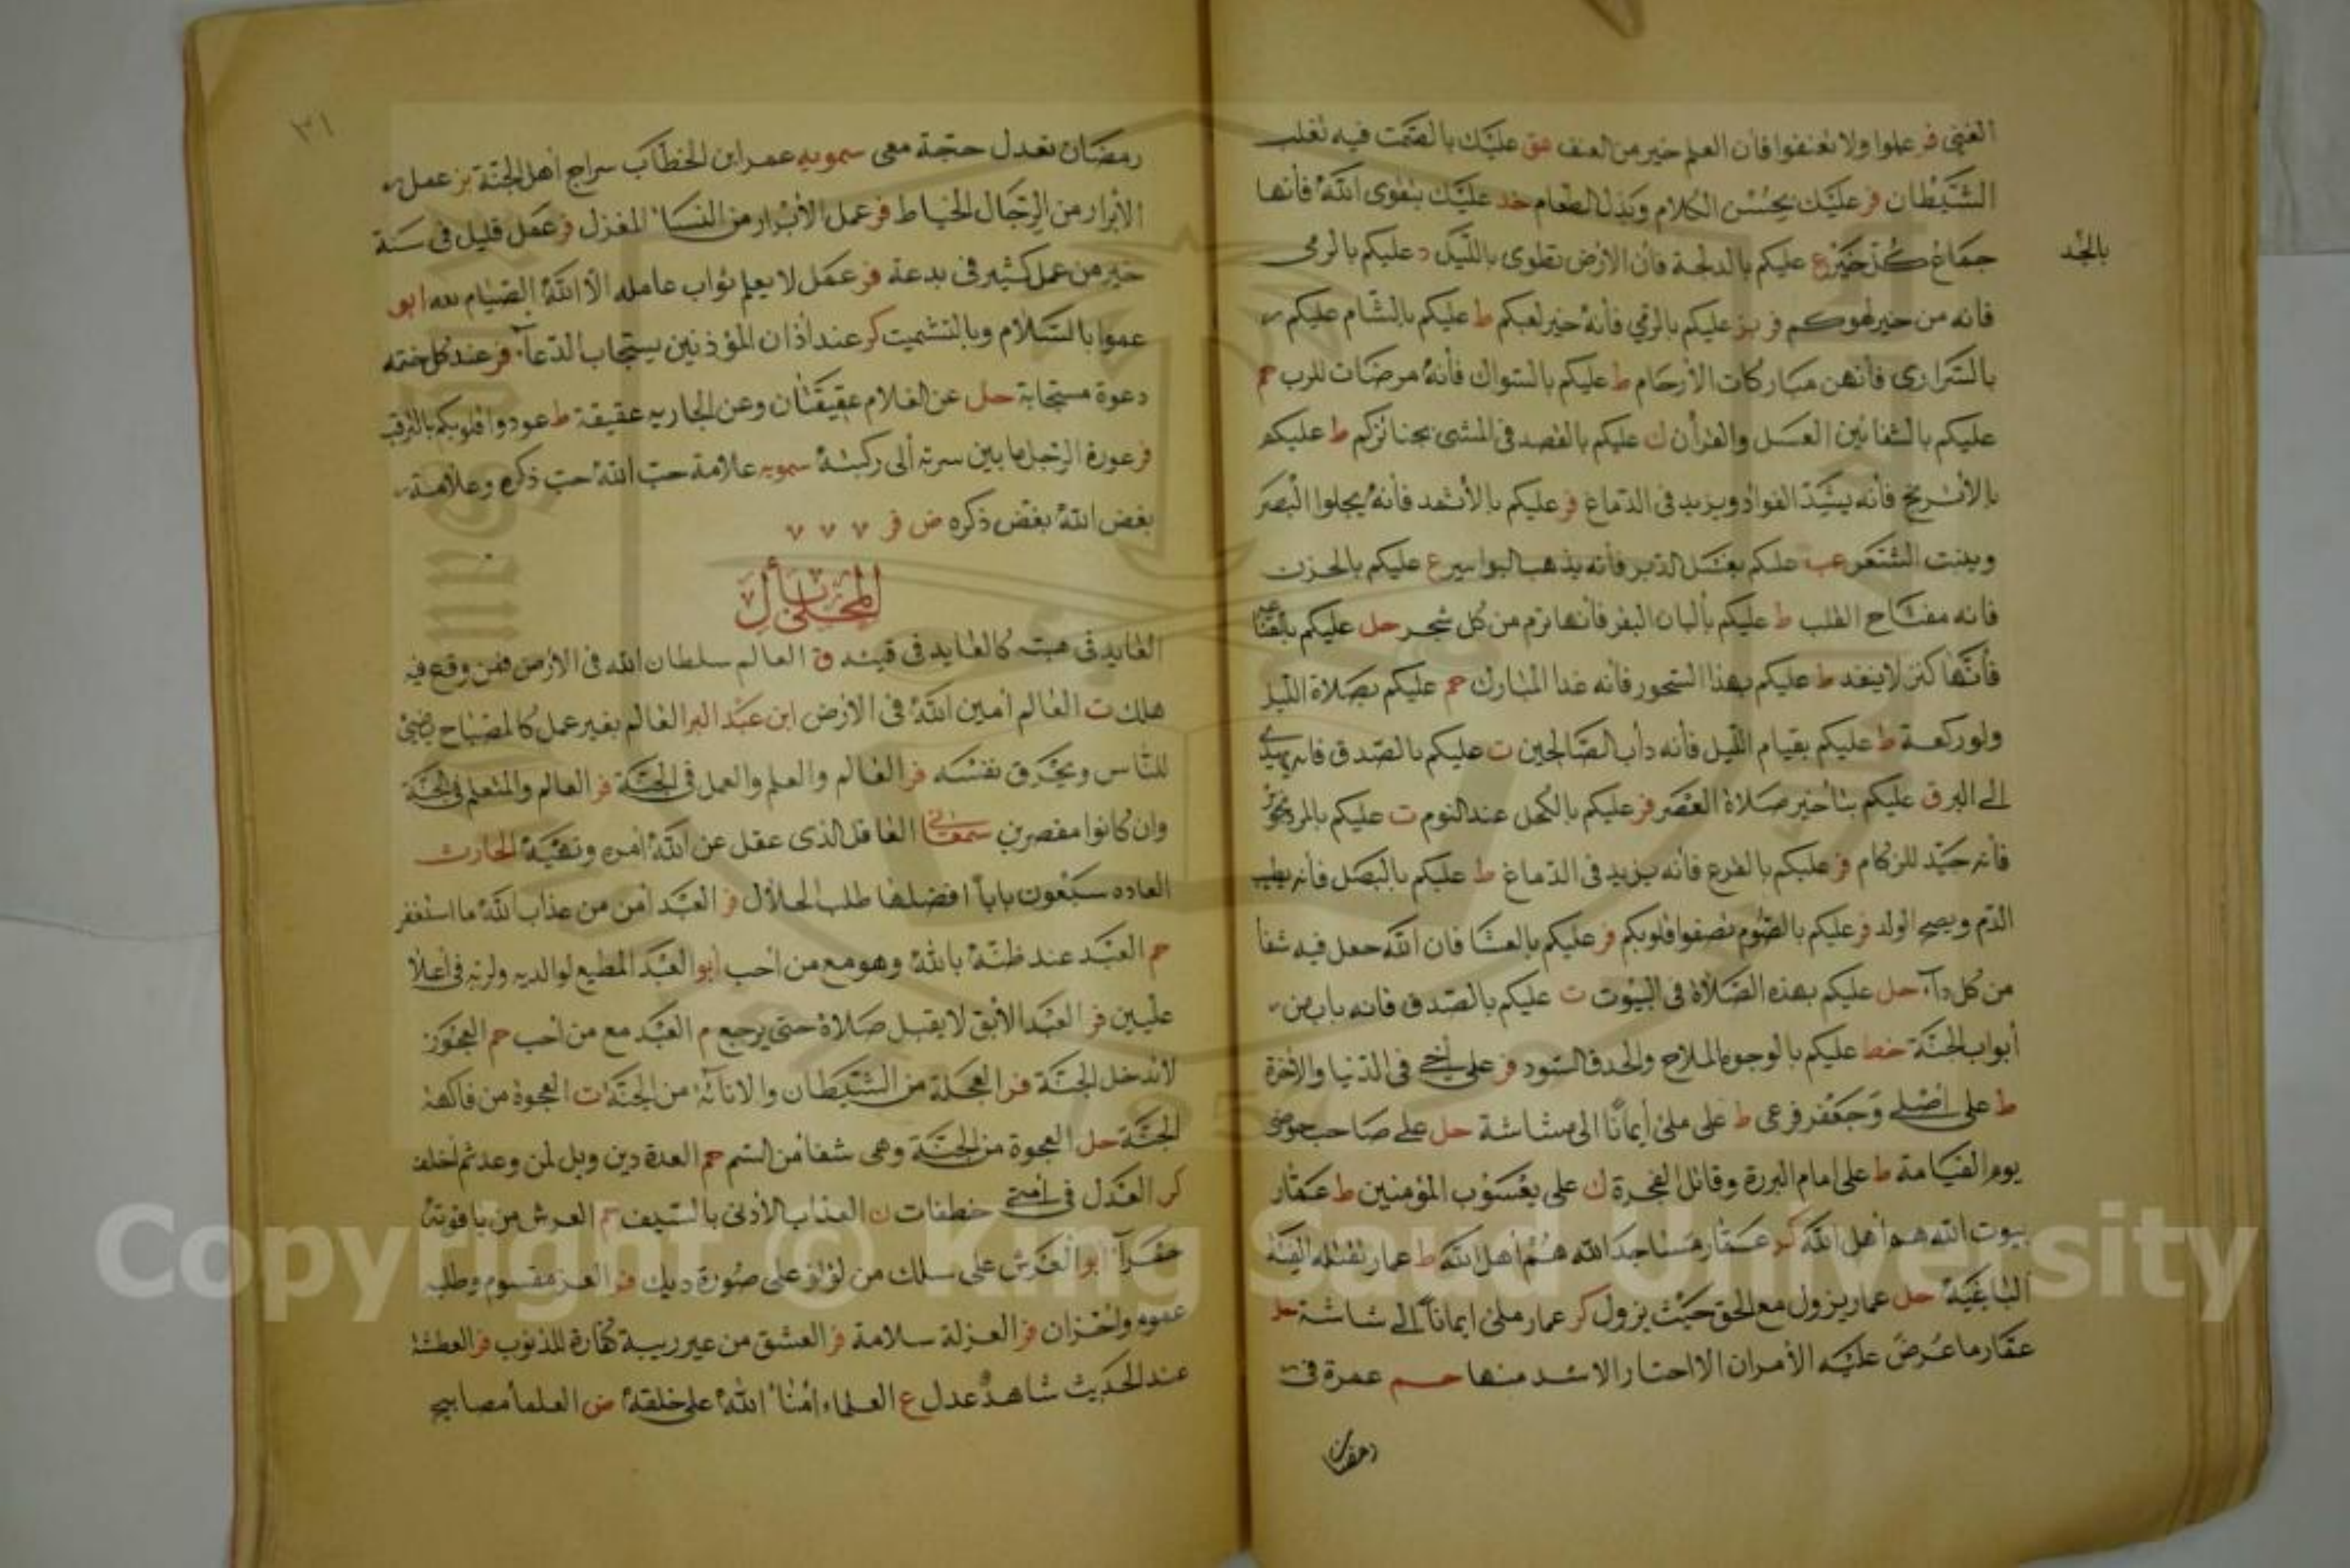 الغنى فر علموا ولا تعنفوا فان العلم خير من العنف هق عليك بالصمت فيه تغلب
الشيطان فر عليك بحسن الكلام وبذل الطعام خد عليك بتقوى الله فأنها
جماع كل خير ع عليكم بالدلجة فان الارض تطوى بالليل د عليكم بالرمى
بالجد
فانه من خير لهوكم فر بز عليكم بالرمي فأنه خير لعبكم ط عليكم بالشام عليكم
بالسرارى فأنهن مباركات الأرحام ط عليكم بالسواك فأنه مرضات للرب حم
عليكم بالشفائين العسل والقرأن ك عليكم بالقصد فى المشى بجنائزكم ط عليكم
بالأترنج فأنه يشد الفواد ويزيد فى الدماغ فر عليكم بالأثمد فأنه يجلوا البصر
وينبت الشعر عب عليكم بغسل الدبر فأنه يذهب البواسير ع عليكم بالحزن
فانه مفتاح القلب ط عليكم بألبان البقر فأنها ترم من كل شجر حل عليكم بالقناعة
فأنها كنز لا ينفد ط عليكم بهذا السحور فأنه غدا المبارك حم عليكم بصلاة الليل
ولو ركعة ط عليكم بقيام الليل فأنه دأب الصالحين ت عليكم بالصدق فانه يهدى
الى البر ق عليكم بتأخير صلاة العصر فر عليكم بالكحل عند النوم ت عليكم بالمردنجوش
فأنه جيد للزكام فر عليكم بالقرع فأنه يزيد فى الدماغ ط عليكم بالبصل فأنه يطيب
الدم ويصح الولد فر عليكم بالصوم تصفوا قلوبكم فر عليكم بالعشا فان الله جعل فيه شفا
من كل دآء حل عليكم بهذه الصلاة فى البيوت ت عليكم بالصدق فانه باب من
أبواب الجنة خط عليكم بالوجوه الملاح والحدق السود فر على أخى فى الدنيا والاخرة
ط على أصلى وجعفر فرعى ط على ملئ أيمانا الى مشاشة حل على صاحب حوضى
يوم القيامة ط على امام البررة وقاتل الفجرة ك على يعسوب المؤمنين ط عمار
بيوت الله هم أهل الله كر عمار مساجد الله هم أهل الله ط عمار تقتله الفئة
الباغية حل عمار يزول مع الحق حيث يزول كر عمار ملئ ايمانا الى شاشة حل
عمار ما عرض عليه الأمران الا اختار الاشد منها حم عمرة فى
رمضان
٣١
رمضان تعدل حجة معى سمويه عمر ابن الخطاب سراج أهل الجنة بز عمل
الأبرار من الرجال الخياط فر عمل الأبرار من النسا المغزل فر عمل قليل فى سنة
خير من عمل كثير فى بدعة فر عمل لا يعلم ثواب عامله الا الله الصيام هب ابى
عموا بالسلام وبالتشميت كر عند أذان المؤذنين يستجاب الدعآء فر عند كل ختمه
دعوة مستجابة حل عن الغلام عقيقتان وعن الجاريه عقيقة ط عودوا قلوبكم بالترقب
فر عورة الرجل ما بين سرته ألى ركبته سمويه علامة حب الله حب ذكره وعلامة
بغض الله بغض ذكره ض فر ٧ ٧ ٧
المحلى بأل
العايد فى هبته كالعايد فى قيئه ق العالم سلطان الله فى الارض فمن وقع فيه
هلك ت العالم أمين الله فى الارض ابن عبد البر العالم بغير عمل كالمصباح يضئ
للناس ويحرق نفسه فر العالم والعلم والعمل فى الجنة فر العالم والمتعلم فى الجنة
وان كانوا مقصرين سمعانى العاقل الذى عقل عن الله أمره ونهيه الحارث
العاده سبعون بابا افضلها طلب الحلال فر العبد أمن من عذاب الله ما استغفر
حم العبد عند ظنه بالله وهو مع من أحب أبو العبد المطيع لوالديه ولربه فى أعلا
عليين فر العبد الأبق لا يقبل صلاة حتى يرجع م العبد مع من أحب حم العجوز
لا تدخل الجنة فر العجلة من الشيطان والاناءة من الجنة ت العجوة من فاكهة
الجنة حل العجوة من الجنة وهى شفا من السم حم العدة دين ويل لمن وعد ثم أخلف
كر العدل فى أمتى خطفات ن العذاب الأدنى بالسيف حم العرش من ياقوتة
حمرآء أبو العرش على سلك من لؤلؤ على صورة ديك فر العز مقسوم وطلب
غموم واحزان فر العزلة سلامة فر العشق من غير ريبة كفارة للذنوب فر العطشة
عند الحديث شاهد عدل ع العلماء أمنا الله على خلقه ض العلما مصابيح
Copyright © King Saud University